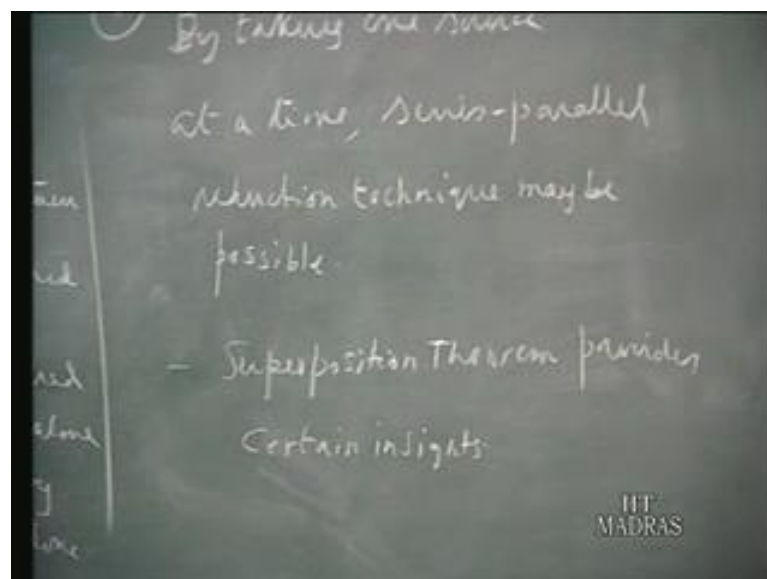 By taking one source
at a time, series-parallel
reduction technique may be
possible.
- Superposition Theorem provides
Certain insights.
alone
IIT
MADRAS